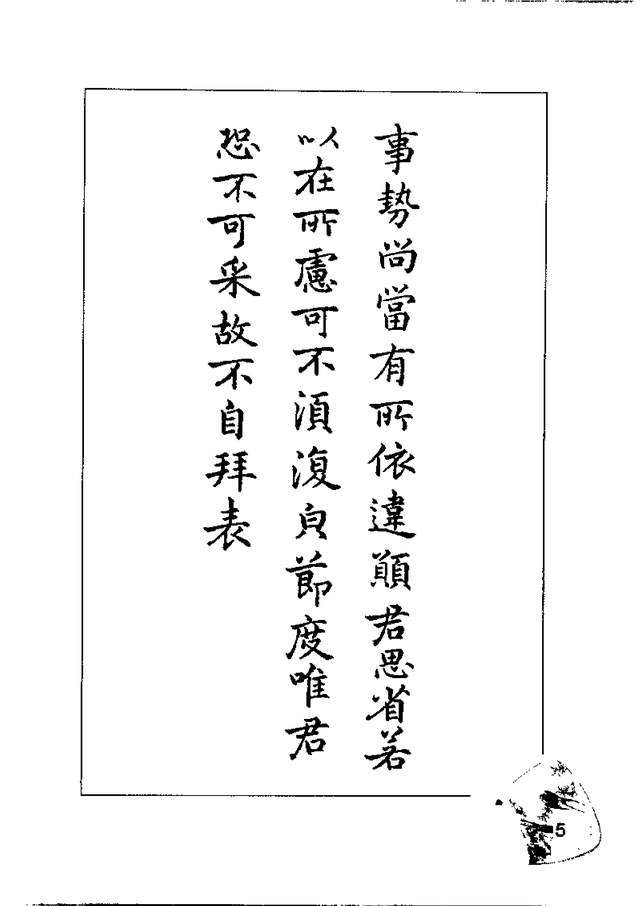 事勢尚當有所依違願君思省若
以在所慮可不須復皃節度唯君
恐不可采故不自拜表
5